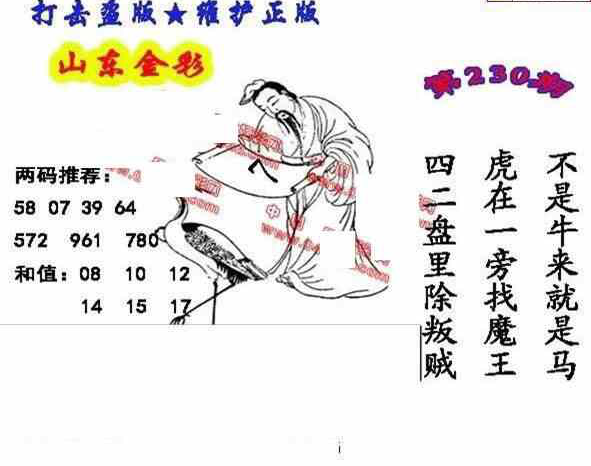 打击盗版★维护正版
山东金彩
第230期
两码推荐：
58 07 39 64
572 961 780
和值：08 10 12
14 15 17
不是牛来就是马
虎在一旁找魔王
四二盘里除叛贼